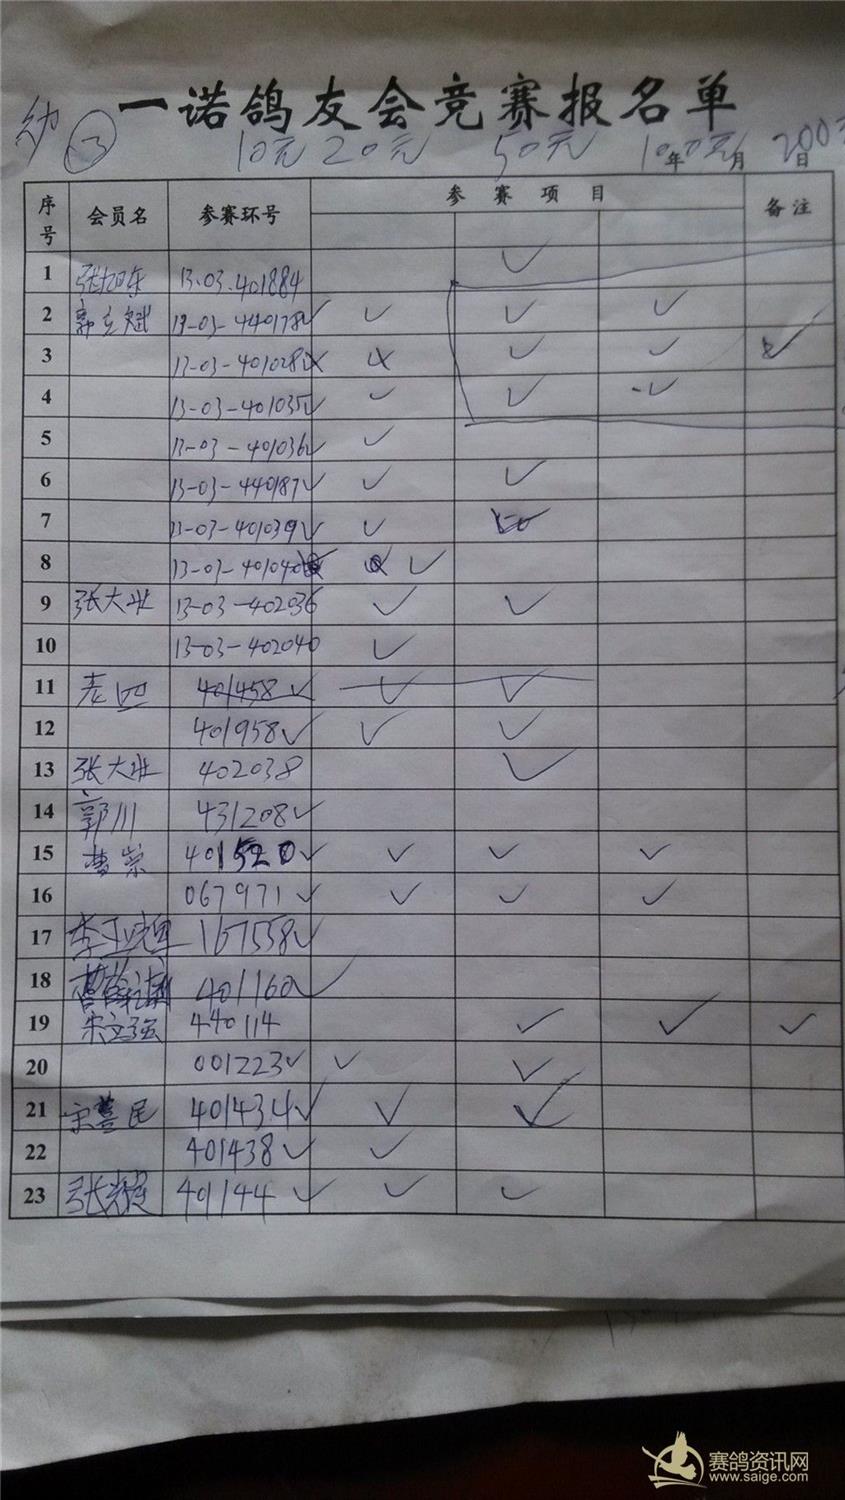 一诺鸽友会竞赛报名单
幼 ③ 10元 20元 50元 100元 200元
年 月 日
序号 会员名 参赛环号 参 赛 项 目 备注
1 13.03.401884 ✓
2 郭立斌 13-03-440178✓ ✓ ✓ ✓
3 13-03-401028 ✓ ✓ ✓
4 13-03-401035✓ ✓ ✓ ✓
5 13-03-401036✓ ✓
6 13-03-440187✓ ✓ ✓
7 13-03-401039✓ ✓
8 13-03-401040 ✓
9 张大业 13-03-402036 ✓ ✓
10 13-03-402040 ✓
11 老四 401458✓ ✓ ✓
12 401958✓ ✓ ✓
13 张大业 402038 ✓
14 郭川 431208✓
15 曹崇 401520✓ ✓ ✓ ✓
16 067971✓ ✓ ✓ ✓
17 167558✓
18 401160✓
19 宋文强 440114 ✓ ✓ ✓
20 001223✓ ✓ ✓
21 401434✓ ✓ ✓
22 401438✓ ✓
23 401144✓ ✓ ✓
赛鸽资讯网
www.saige.com